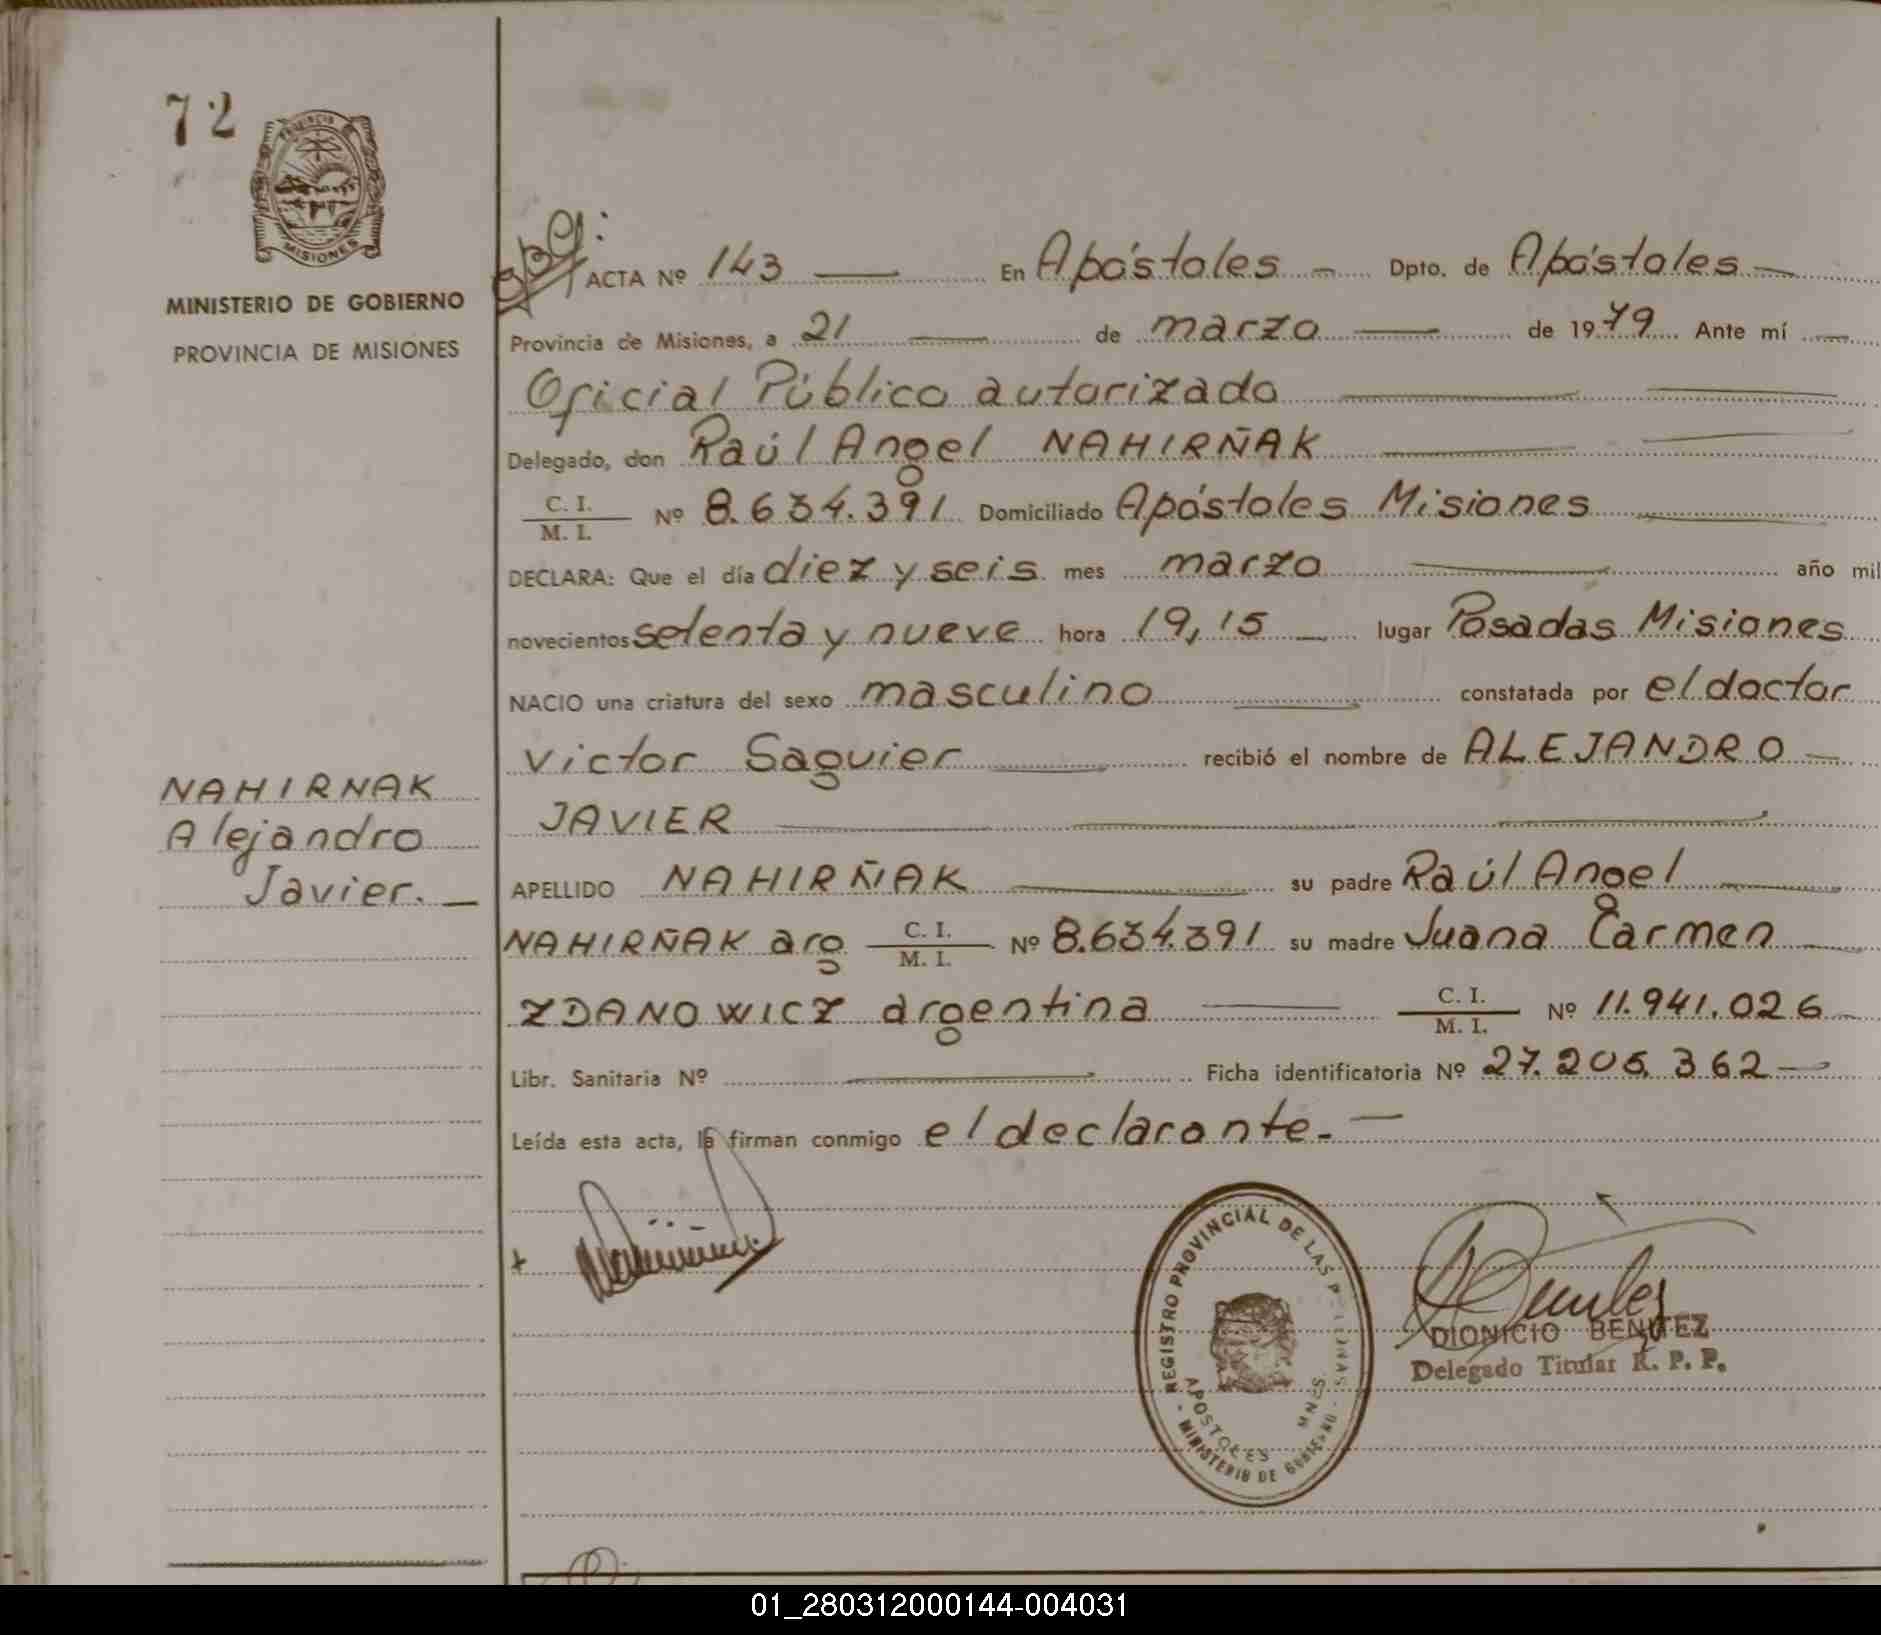 72
PROVINCIA
MISIONES
MINISTERIO DE GOBIERNO
PROVINCIA DE MISIONES
NAHIRNAK
Alejandro
Javier. —
ACTA Nº 143 — En Apóstoles — Dpto. de Apóstoles —
Provincia de Misiones, a 21 — de marzo — de 1979 Ante mí —
Oficial Público autorizado —
Delegado, don Raúl Angel NAHIRÑAK —
C. I.
M. I. Nº 8.634.391 Domiciliado Apóstoles Misiones —
DECLARA: Que el día diez y seis mes marzo — año mil
novecientos setenta y nueve hora 19,15 — lugar Posadas Misiones
NACIO una criatura del sexo masculino — constatada por el doctor
Victor Saguier — recibió el nombre de ALEJANDRO —
JAVIER —
APELLIDO NAHIRÑAK — su padre Raúl Angel —
NAHIRÑAK arg C. I. M. I. Nº 8.634.391 su madre Juana Carmen —
ZDANOWICZ argentina — C. I. M. I. Nº 11.941.026 —
Libr. Sanitaria Nº — Ficha identificatoria Nº 27.205.362 —
Leída esta acta, la firman conmigo el declarante. —
REGISTRO PROVINCIAL DE LAS PERSONAS
APOSTOLES MNES.
- MINISTERIO DE GOBIERNO -
DIONICIO BENITEZ
Delegado Titular R. P. P.
01_280312000144-004031